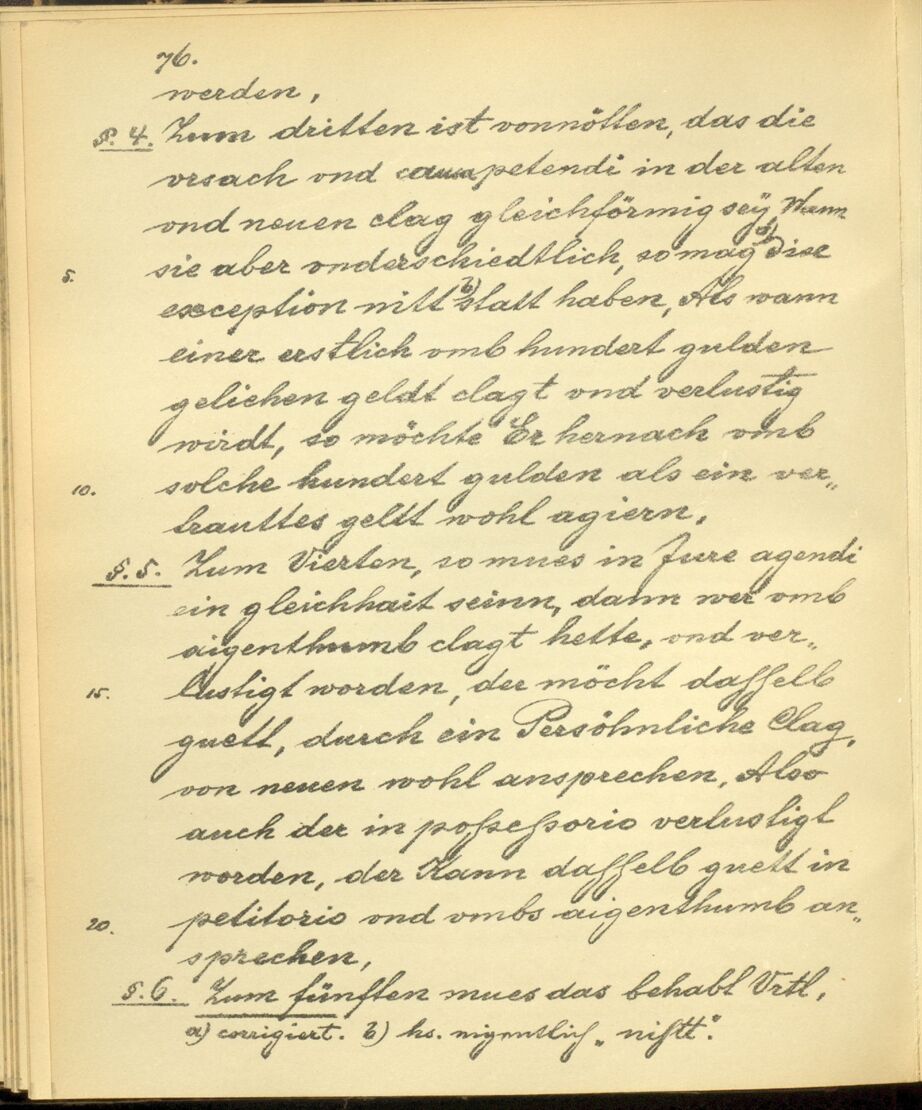 76.
werden,
§. 4. Zum dritten ist vonnötten, das die
vrsach vnd causa petendi in der alten
vnd neuen clag gleichförmig seÿ, Wann
5. sie aber vnderschiedtlich, so mag a) dise
exception nitt b) statt haben, Als wann
einer erstlich vmb hundert gulden
gelichen geldt clagt vnd verlustig
wirdt, so möchte Er hernach vmb
10. solche hundert gulden als ein ver„
trauttes geltt wohl agiern.
§. 5. Zum Vierten, so mues in Jure agendi
ein gleichhait seinn, dann wer vmb
aigenthumb clagt hette, vnd ver„
15. lustigt worden, der möcht dasselb
guett, durch ein Persöhnliche Clag,
von neuen wohl ansprechen, Also
auch der in possessorio verlustigt
worden, der Kann dasselb guett in
20. petitorio vnd vmbs aigenthumb an„
sprechen,
§. 6. Zum fünften mues das behabt Vrtl,
a) corrigiert. b) hs. eigentlich „nistt".